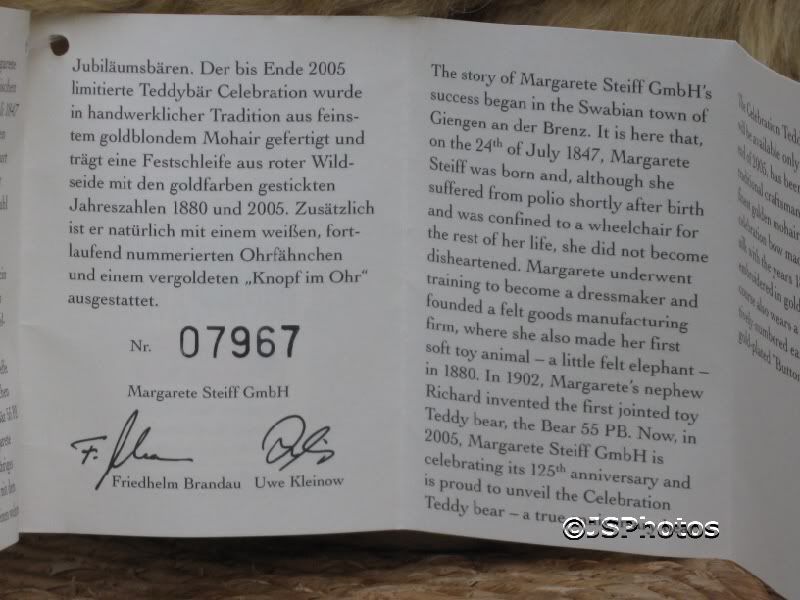 Jubiläumsbären. Der bis Ende 2005
limitierte Teddybär Celebration wurde
in handwerklicher Tradition aus feins-
tem goldblondem Mohair gefertigt und
trägt eine Festschleife aus roter Wild-
seide mit den goldfarben gestickten
Jahreszahlen 1880 und 2005. Zusätzlich
ist er natürlich mit einem weißen, fort-
laufend nummerierten Ohrfähnchen
und einem vergoldeten „Knopf im Ohr“
ausgestattet.
Nr. 07967
Margarete Steiff GmbH
Friedhelm Brandau Uwe Kleinow
The story of Margarete Steiff GmbH’s
success began in the Swabian town of
Giengen an der Brenz. It is here that,
on the 24th of July 1847, Margarete
Steiff was born and, although she
suffered from polio shortly after birth
and was confined to a wheelchair for
the rest of her life, she did not become
disheartened. Margarete underwent
training to become a dressmaker and
founded a felt goods manufacturing
firm, where she also made her first
soft toy animal – a little felt elephant –
in 1880. In 1902, Margarete’s nephew
Richard invented the first jointed toy
Teddy bear, the Bear 55 PB. Now, in
2005, Margarete Steiff GmbH is
celebrating its 125th anniversary and
is proud to unveil the Celebration
Teddy bear – a true
The Celebration Tedd
will be available only
end of 2005, has been
traditional craftsman
finest golden mohair
celebration bow mad
silk with the years 18
embroidered in gold
course also wears a
tively-numbered ea
gold-plated "Button
©JSPhotos